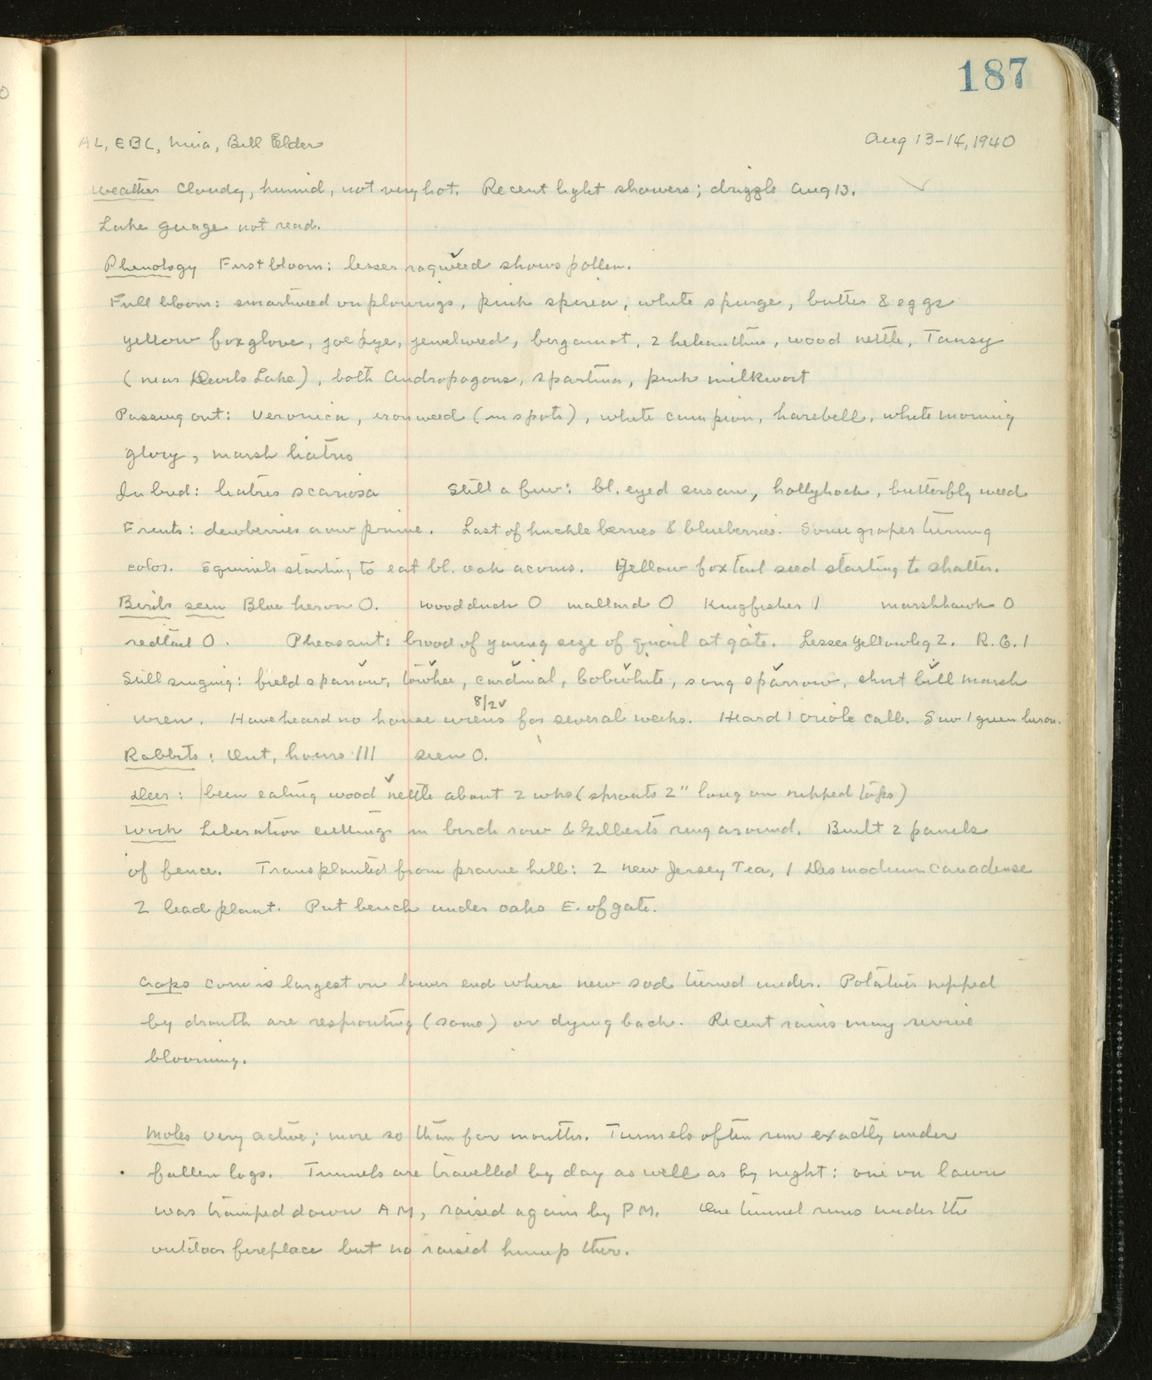 187
AL, EBL, Nina, Bill Elder Aug 13-14, 1940
Weather Cloudy, humid, not very hot. Recent light showers; drizzle Aug 13.
Lake guage not read.
Phenology First bloom: lesser ragweed shows pollen.
Full bloom: smartweed on plowings, pink spirea, white spurge, butter & eggs
yellow foxglove, joe pye, jewelweed, bergamot, 2 helianthus, wood nettle, Tansy
(near Devils Lake), both Andropogons, spartina, pink milkwort
Passing out: Veronica, ironweed (in spots), white campion, harebell, white morning
glory, marsh liatris
In bud: liatris scariosa Still a few: bl. eyed susan, hollyhock, butterfly weed
Fruits: dewberries now prime. Last of huckleberries & blueberries. Some grapes turning
color. Squirrels starting to eat bl. oak acorns. Yellow foxtail seed starting to shatter.
Birds seen Blue heron 0. woodduck 0 mallard 0 Kingfisher 1 marshhawk 0
redtail 0. Pheasant: brood of young size of quail at gate. Lesser Yellowleg 2. R.G. 1
Still singing: field sparrow, towhee, cardinal, bobwhite, song sparrow, short bill marsh
8/20
wren. Have heard no house wrens for several weeks. Heard 1 oriole call. Saw 1 green heron.
Rabbits: Out, hours 111 seen 0.
Deer: been eating wood nettle about 2 wks (sprouts 2" long on nipped tops)
Work Liberation cuttings in birch row & Gilberts ring around. Built 2 panels
of fence. Transplanted from prairie hill: 2 new Jersey Tea, 1 Desmodium canadense
2 lead plant. Put bench under oaks E. of gate.
Crops Corn is largest on lower end where new sod turned under. Potatoes nipped
by drouth are resprouting (some) or dying back. Recent rains may revive
blooming.
Moles very active; more so than for months. Tunnels often run exactly under
fallen logs. Tunnels are travelled by day as well as by night: one on lawn
was tramped down AM, raised again by PM. One tunnel runs under the
outdoor fireplace but no raised hump there.